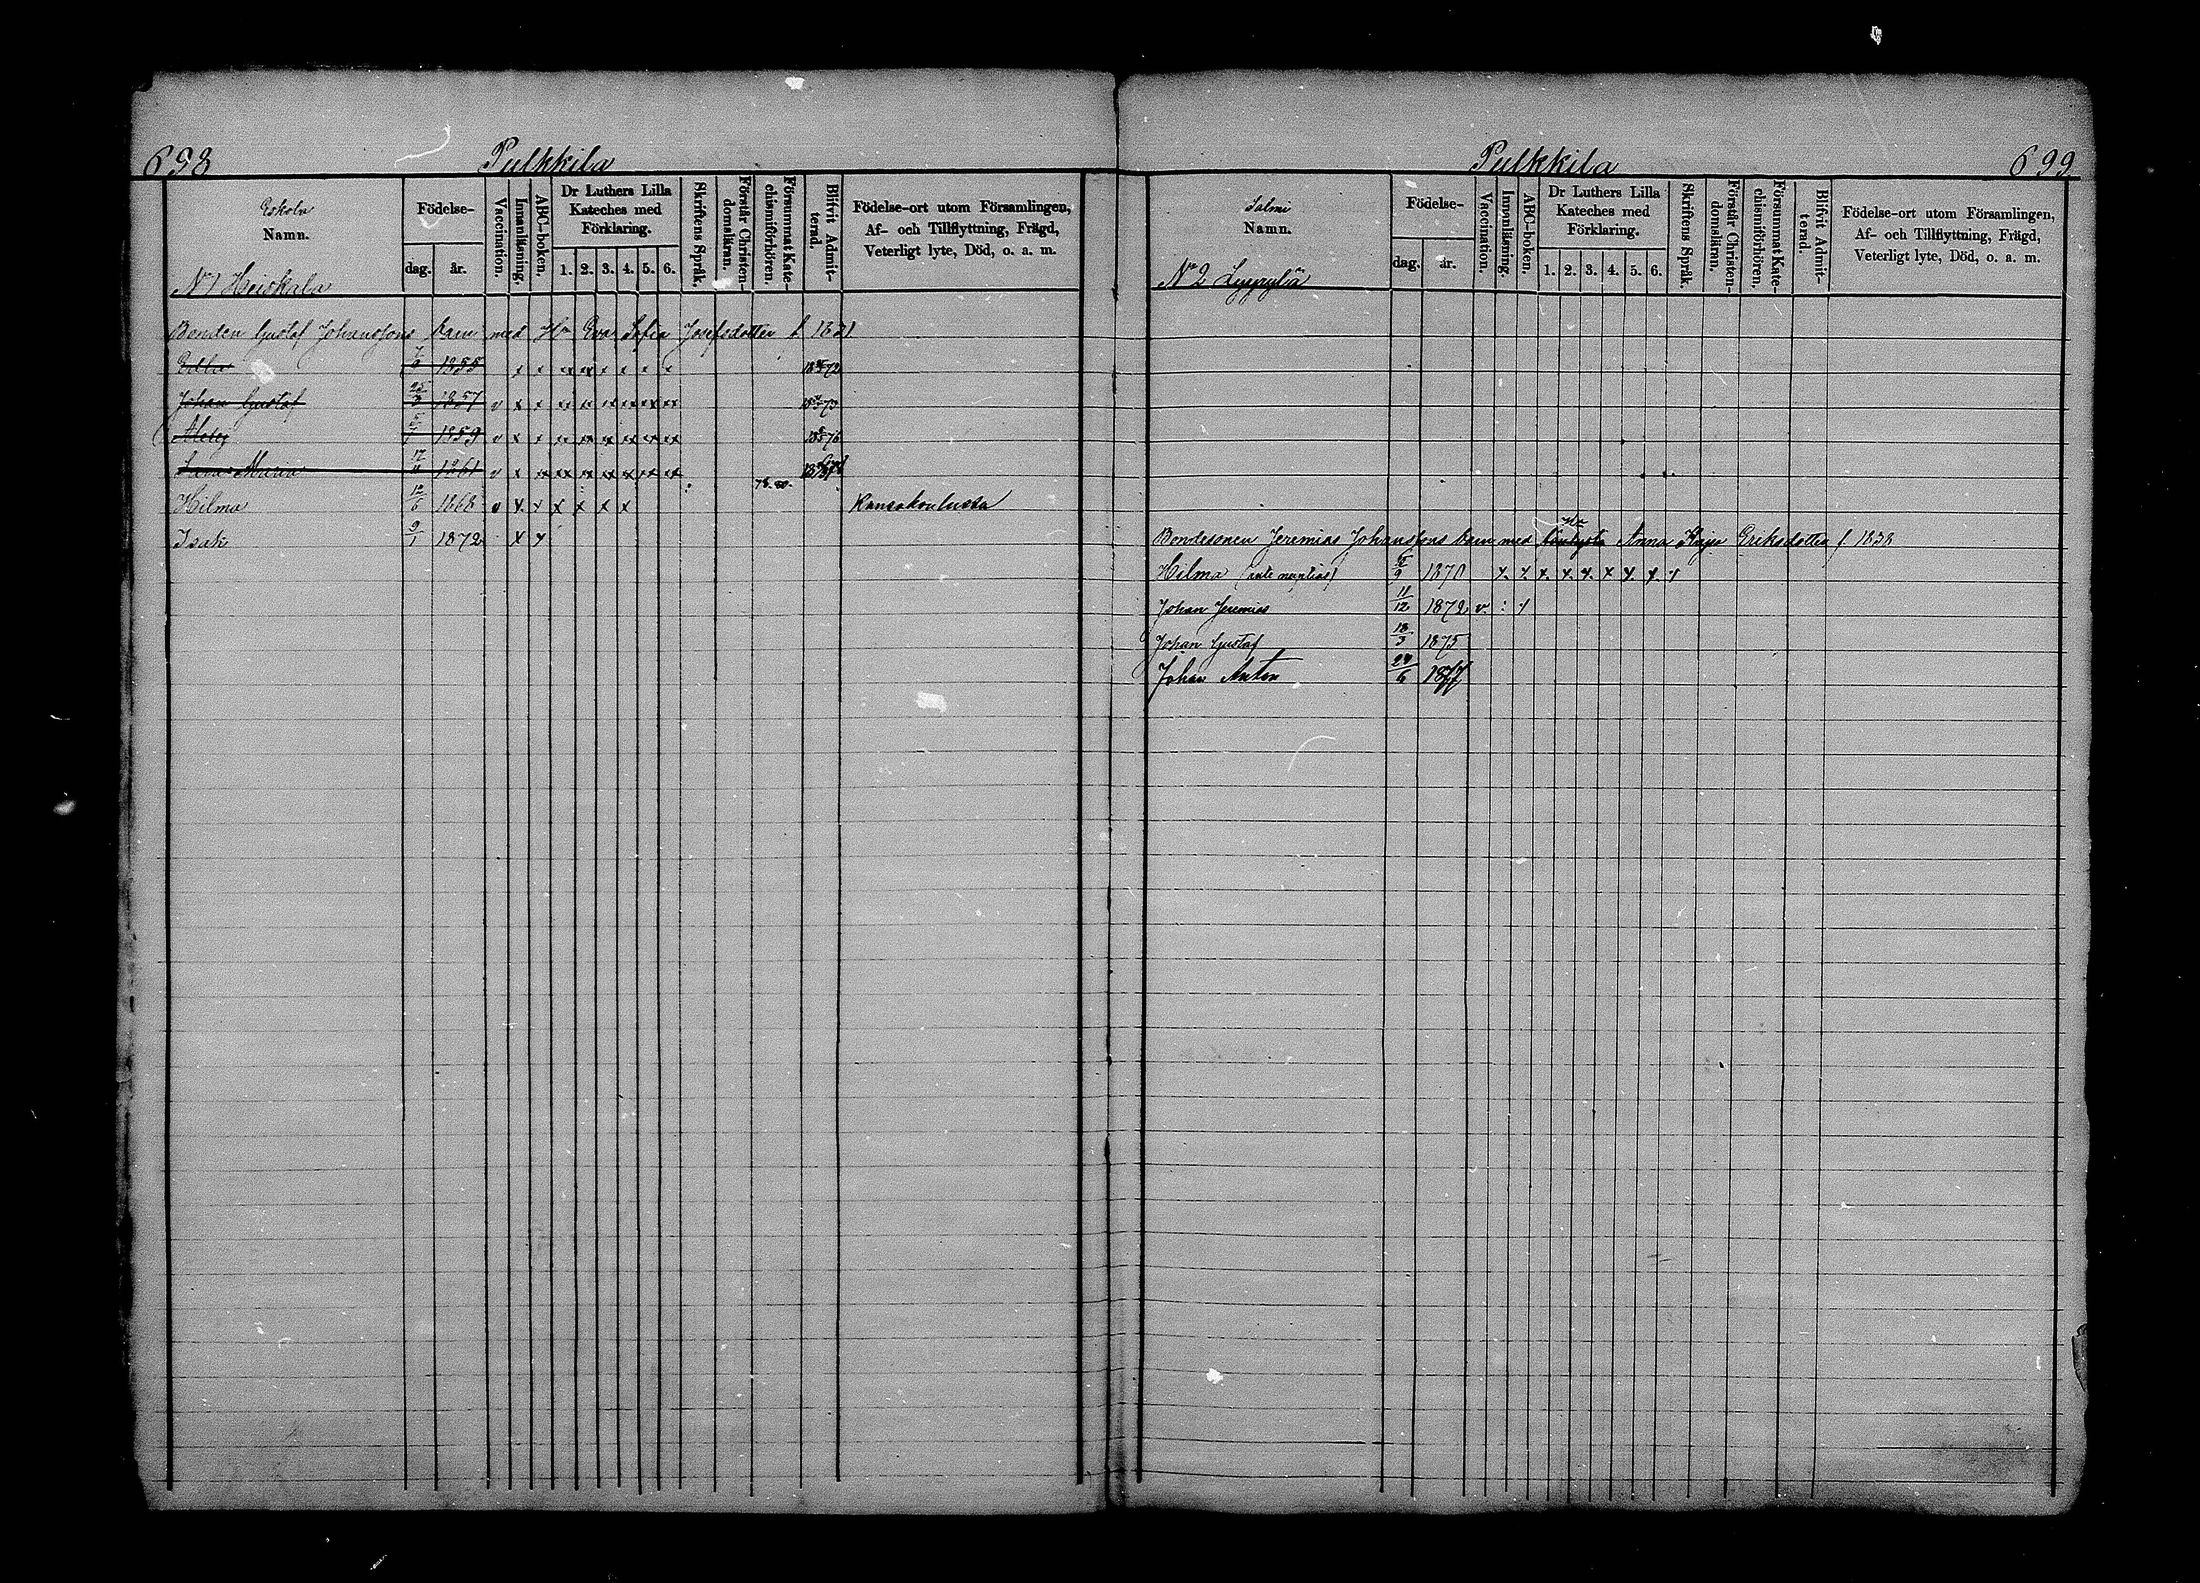 698 Pulkkila
Eskola
Namn.
Födelse-
dag. år.
Vaccination.
Innanläsning.
ABC-boken.
Dr Luthers Lilla
Kateches med
Förklaring.
1. 2. 3. 4. 5. 6.
Skriftens Språk.
Förstår Christen-
domsläran.
Försummat Kate-
chismiförhören.
Blifvit Admit-
terad.
Födelse-ort utom Församlingen,
Af- och Tillflyttning, Frägd,
Veterligt lyte, Död, o. a. m.
No 1 Heiskala
Bonden Gustaf Johanssons barn med Hu Eva Sofia Josefsdotter f. 1831
1855 x x xx xx x x x x
Johan Gustaf 25/3 1857 v x x xx xx xx xx xx xx
1859 v x x xx xx xx xx xx xx
Maria 1861 v x xx xx xx xx xx xx xx
Hilma 12/6 1868 v x x x x x x Kansakoulussa
Isak 9/1 1872 x x
Pulkkila 699
Salmi
Namn.
Födelse-
dag. år.
Vaccination.
Innanläsning.
ABC-boken.
Dr Luthers Lilla
Kateches med
Förklaring.
1. 2. 3. 4. 5. 6.
Skriftens Språk.
Förstår Christen-
domsläran.
Försummat Kate-
chismiförhören.
Blifvit Admit-
terad.
Födelse-ort utom Församlingen,
Af- och Tillflyttning, Frägd,
Veterligt lyte, Död, o. a. m.
No 2
Bondesonen Jeremias Johanssons barn med Hu Anna Kajsa Eriksdotter f. 1838
Hilma 1870 x x x x x x x x x
Johan Jeremias 11/12 1872 v
Johan Gustaf 18/3 1875
Johan Anton 24/6 1877